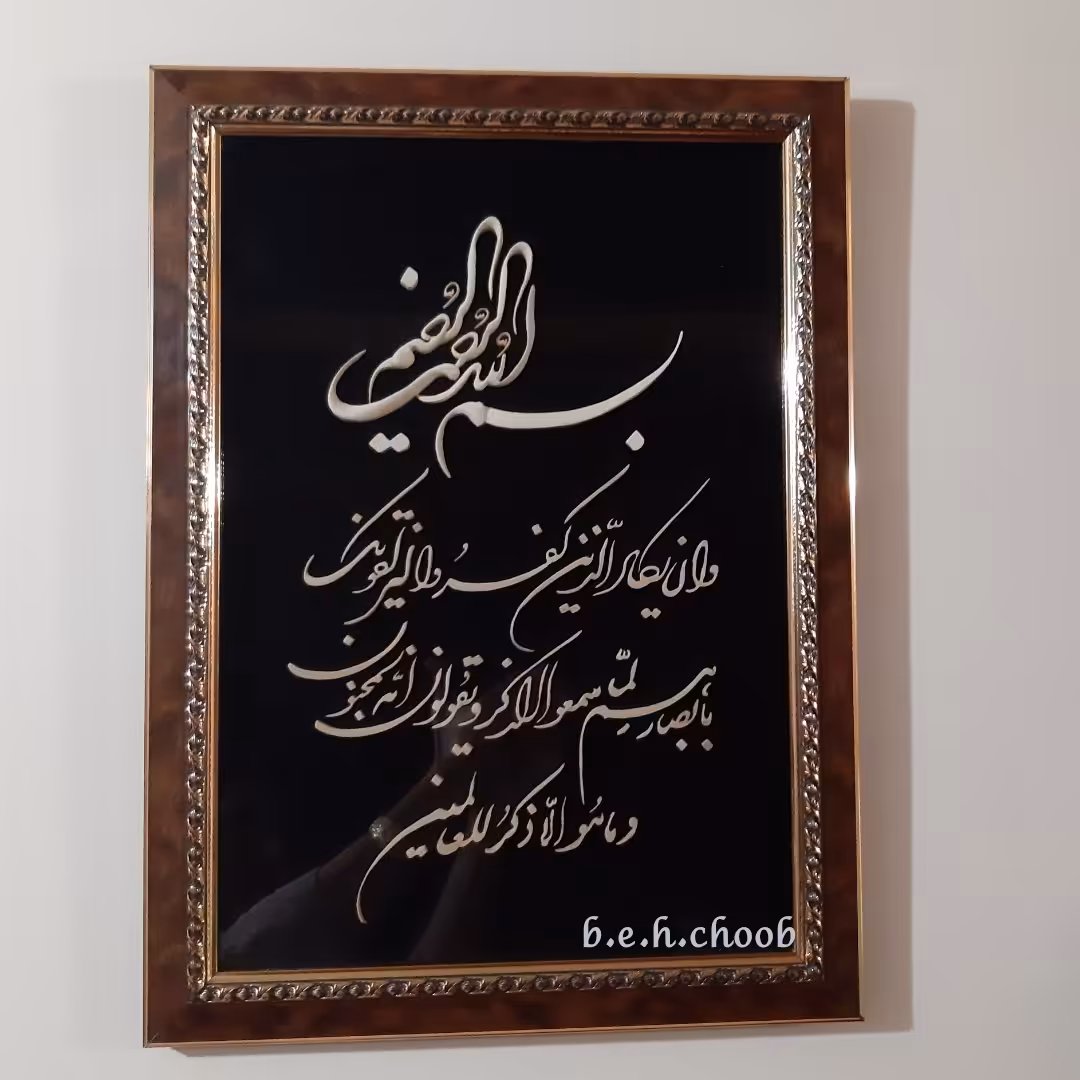 بسم الله الرحمن الرحیم
وان یکاد الذین کفروا لیزلقونک
بابصارهم لمّا سمعوا الذکر ویقولون انه لمجنون
وما هو الّا ذکرُ للعالمین
b.e.h.choob